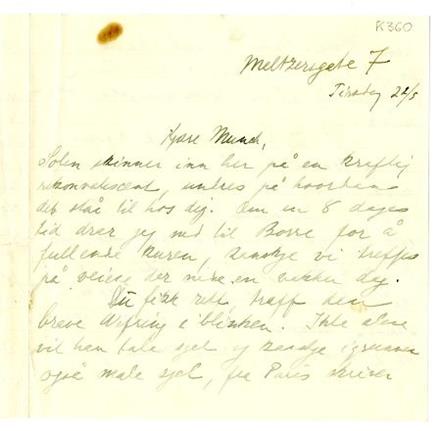 K360
Meltzersgate 7
Tirsdag 22/5
Kjære Munch,
Solen skinner inn her på en kraftig
rekonvalescent, undres på hvordan
det står til hos dig. Om en 8 dages
tid drar jeg ned til Borre for å
fullende kuren, kanskje vi treffes
på veiene der nede en vakker dag.
Du fikk rett, traff den
brave i blinken. Ikke bare
vil han tale sjel og kanskje
også male sjel, fra Paris skriver